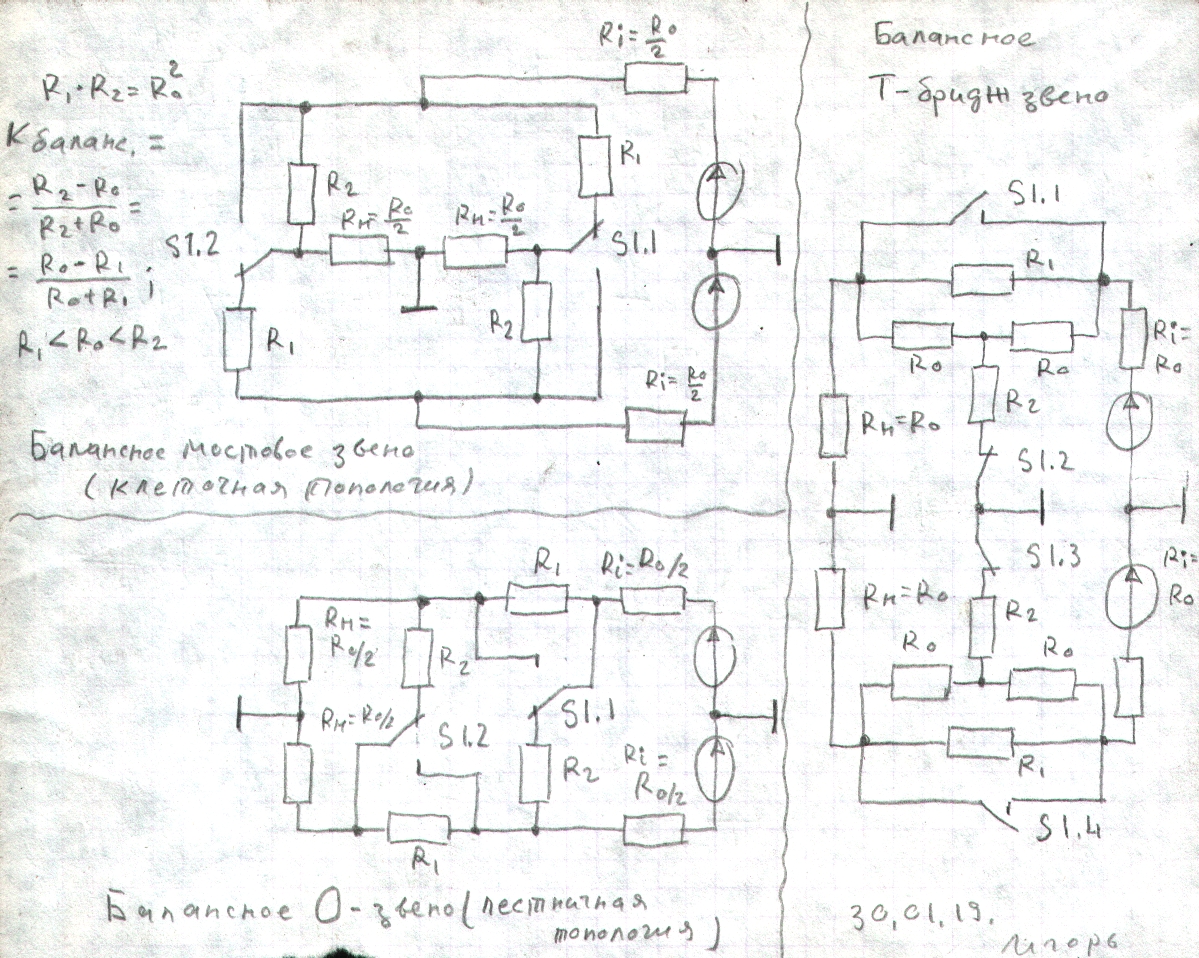 R₁·R₂=R₀²
К баланс. =
= (R₂-R₀)/(R₂+R₀) =
= (R₀-R₁)/(R₀+R₁);
R₁<R₀<R₂
Ri=R₀/2
R₂
Rн=R₀/2
Rн=R₀/2
R₁
S1.2
S1.1
R₁
R₂
Ri=R₀/2
Балансное мостовое звено
(клеточная топология)
Rн=
R₀/2
R₂
R₁
Ri=R₀/2
Rн=R₀/2
S1.2
S1.1
R₂
Ri=
R₀/2
R₁
Балансное О-звено (лестничная
топология)
Балансное
Т-бридж звено
S1.1
R₁
R₀
R₀
Ri=
R₀
Rн=R₀
R₂
S1.2
S1.3
Rн=R₀
R₂
Ri=
R₀
R₀
R₀
R₁
S1.4
30,01,19.
Игорь